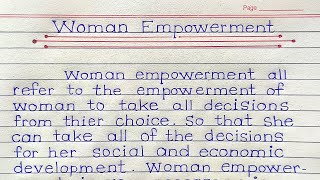 Page
Woman Empowerment
Woman empowerment all
refer to the empowerment of
woman to take all decisions
from thier choice. So that she
can take all of the decisions
for her social and economic
development. Woman empower-